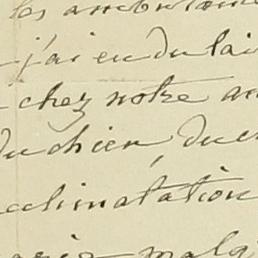 les ambulan
j'ai eu du lai
chez notre am
du chien, du c
cclimatation
malg